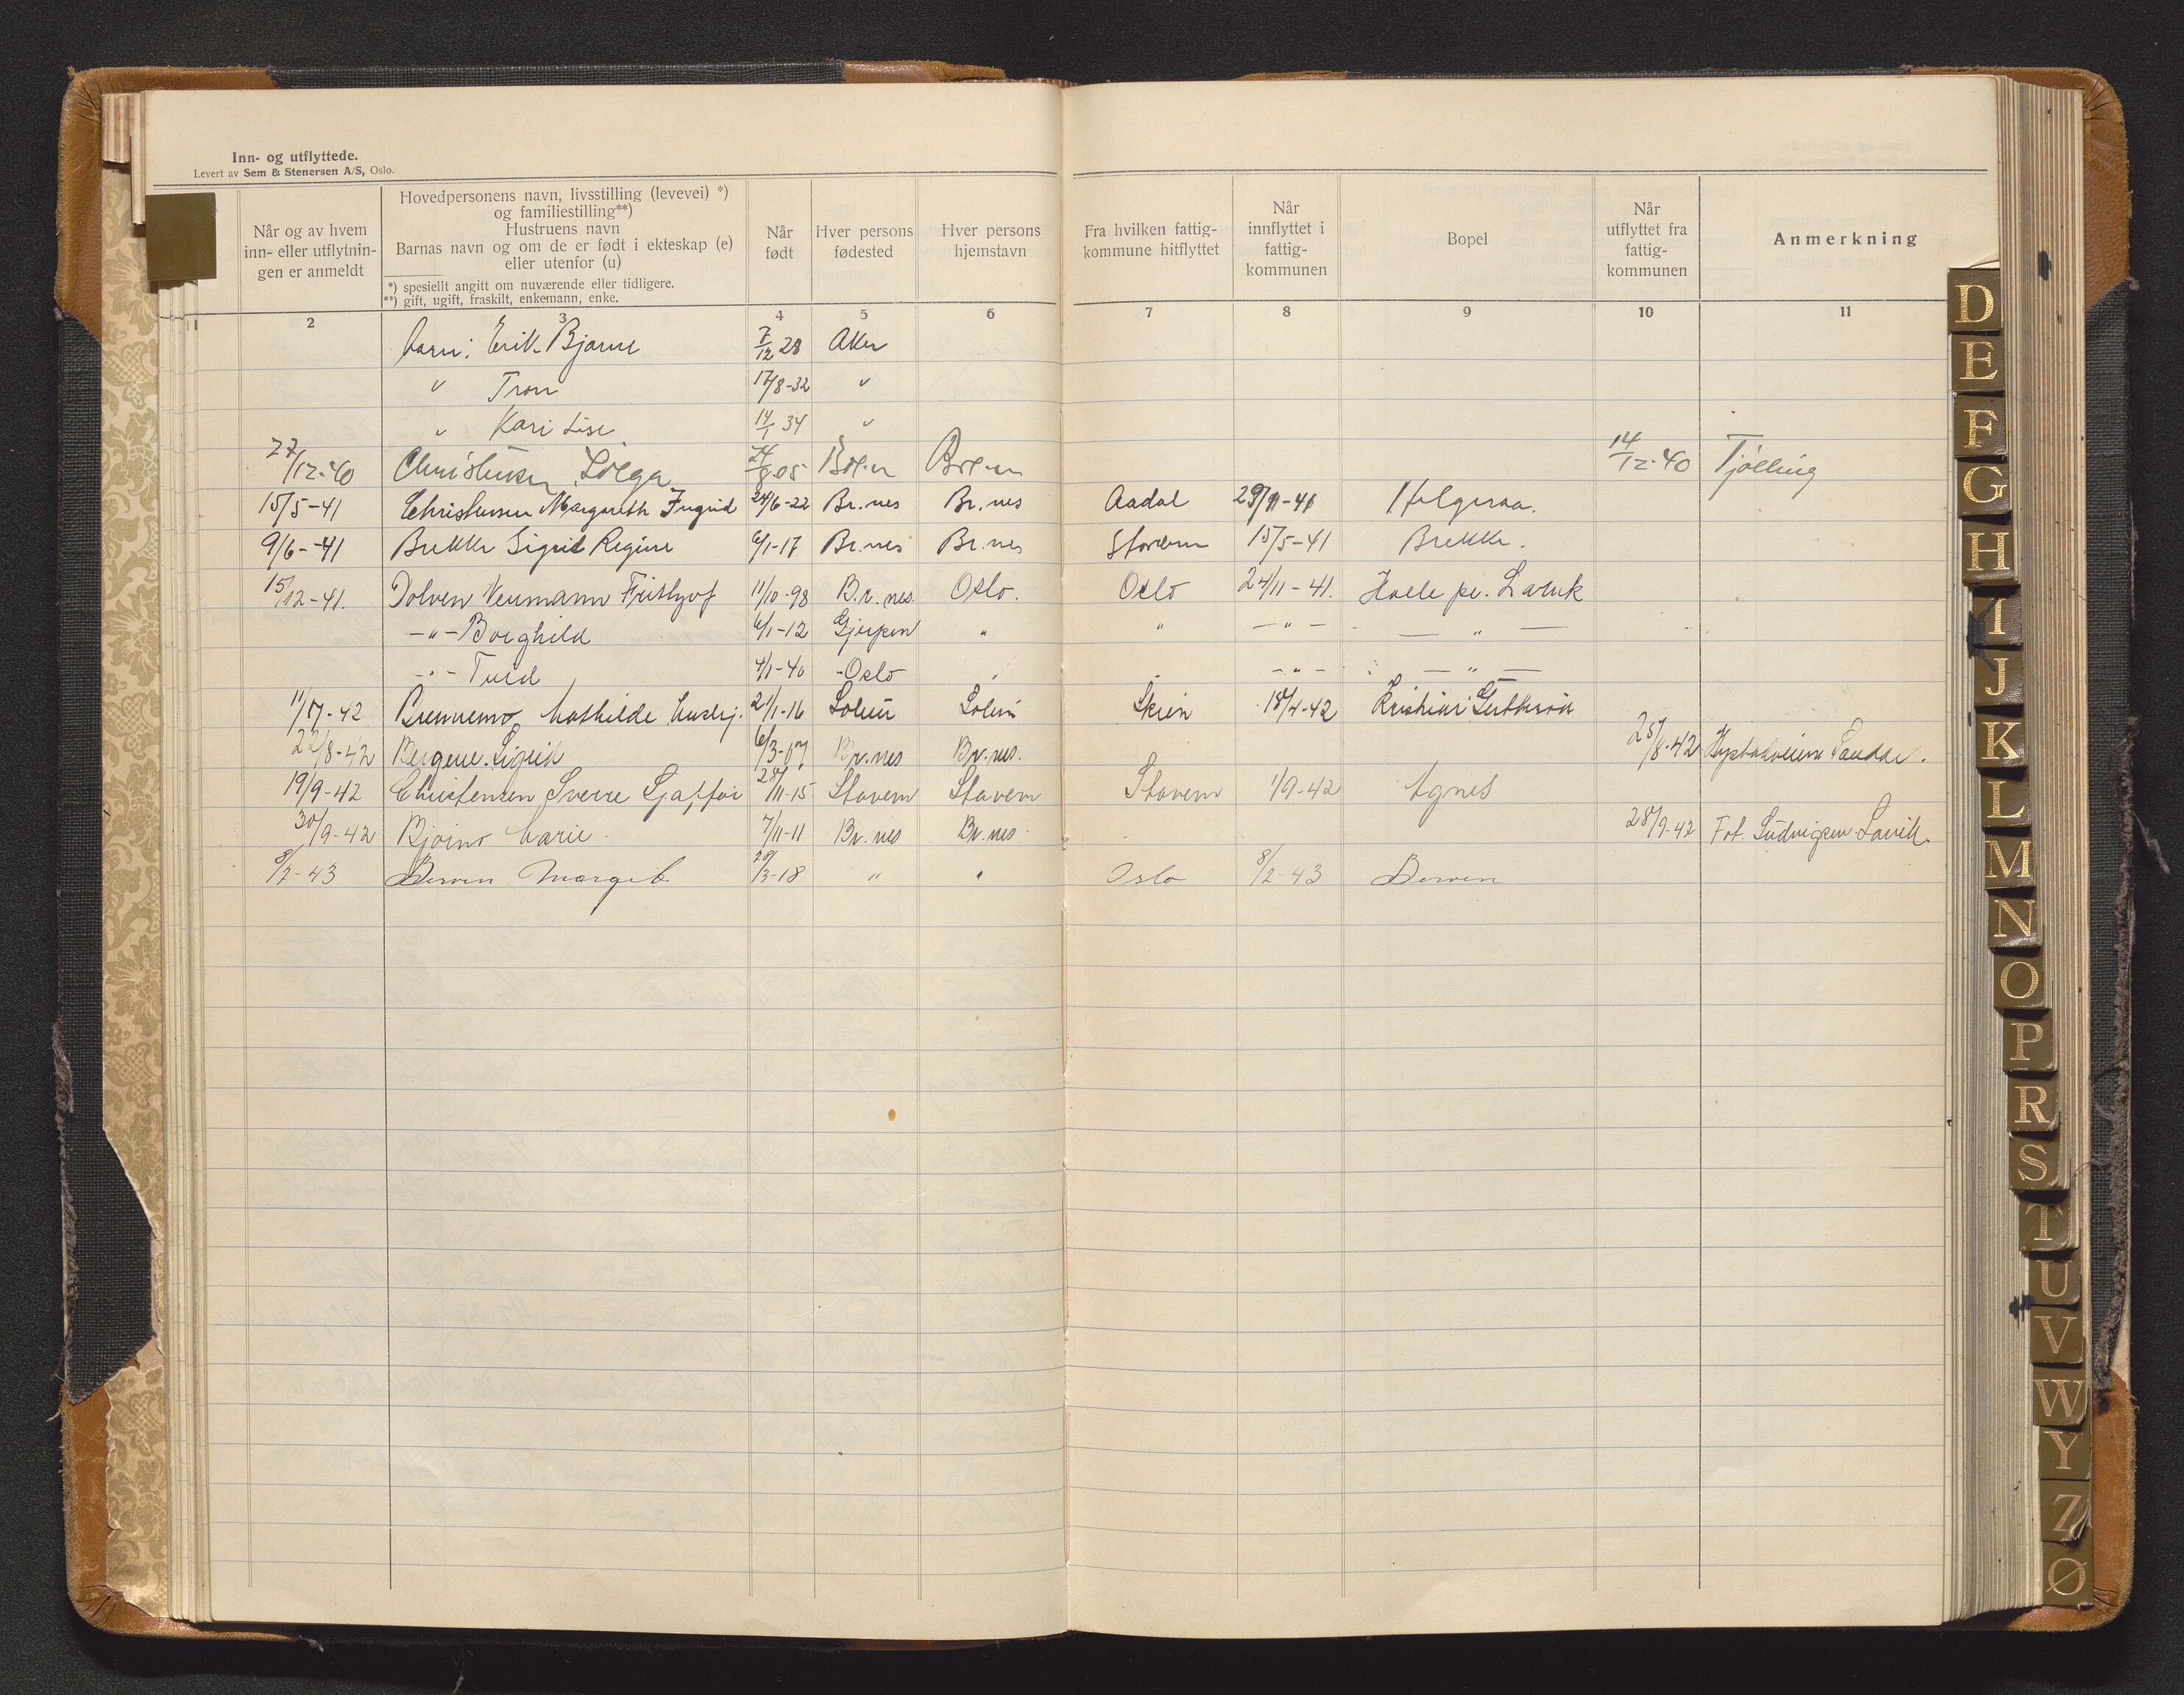 Inn- og utflyttede.
Levert av Sem & Stenersen A/S, Oslo.
Når og av hvem inn- eller utflytnin- gen er anmeldt
Hovedpersonens navn, livsstilling (levevei) *)
og familiestilling**)
Hustruens navn
Barnas navn og om de er født i ekteskap (e)
eller utenfor (u)
*) spesiellt angitt om nuværende eller tidligere.
**) gift, ugift, fraskilt, enkemann, enke.
Når født
Hver persons fødested
Hver persons hjemstavn
Fra hvilken fattig- kommune hitflyttet
Når innflyttet i fattig- kommunen
Bopel
Når utflyttet fra fattig- kommunen
Anmerkning
1 2 3 4 5 6 7 8 9 10 11
barn: Erik Bjarne 7/12 28 Aker
" Tron 17/8-32 "
" Kari Lise 14/1 34 "
27/12-40 Christensen 24/8 05 14/12-40 Tjølling
15/5-41 Christensen Margareth Ingrid 24/6-22 Br.nes Br.nes Aadal Helgeraa.
9/6-41 Brekke Sigrid Regine 6/1-17 Br.nes Br.nes 15/5-41 Brekke.
15/12-41. Dolven Frithjof 11/10-98 B.r.nes. Oslo. Oslo 24/11-41. Halle pr. Larvik
-"- Borghild 6/1-12 Gjerpen " " -"- -"-
-"- Turid 4/1-40 -Oslo " " -"- -"-
Mathilde hustr. 21/1-16 Solum Solum Skien 18/4-42
22/8-42 Bergene Sigrid 6/3-07 Br.nes Br.nes. 25/8-42 Sandar.
19/9-42 Christensen Sverre 28/11-15 Stavern Stavern Stavern 1/9-42 Agnes
30/9-42 Carie 7/11-11 Br.nes Br.nes 28/9-42 Fot. Ludvigsen Larvik.
8/2-43 Margit 28/3-18 " " Oslo 8/2-43
D
E
F
G
H
I
J
K
L
M
N
O
P
R
S
T
U
V
W
Y
Z
Ø